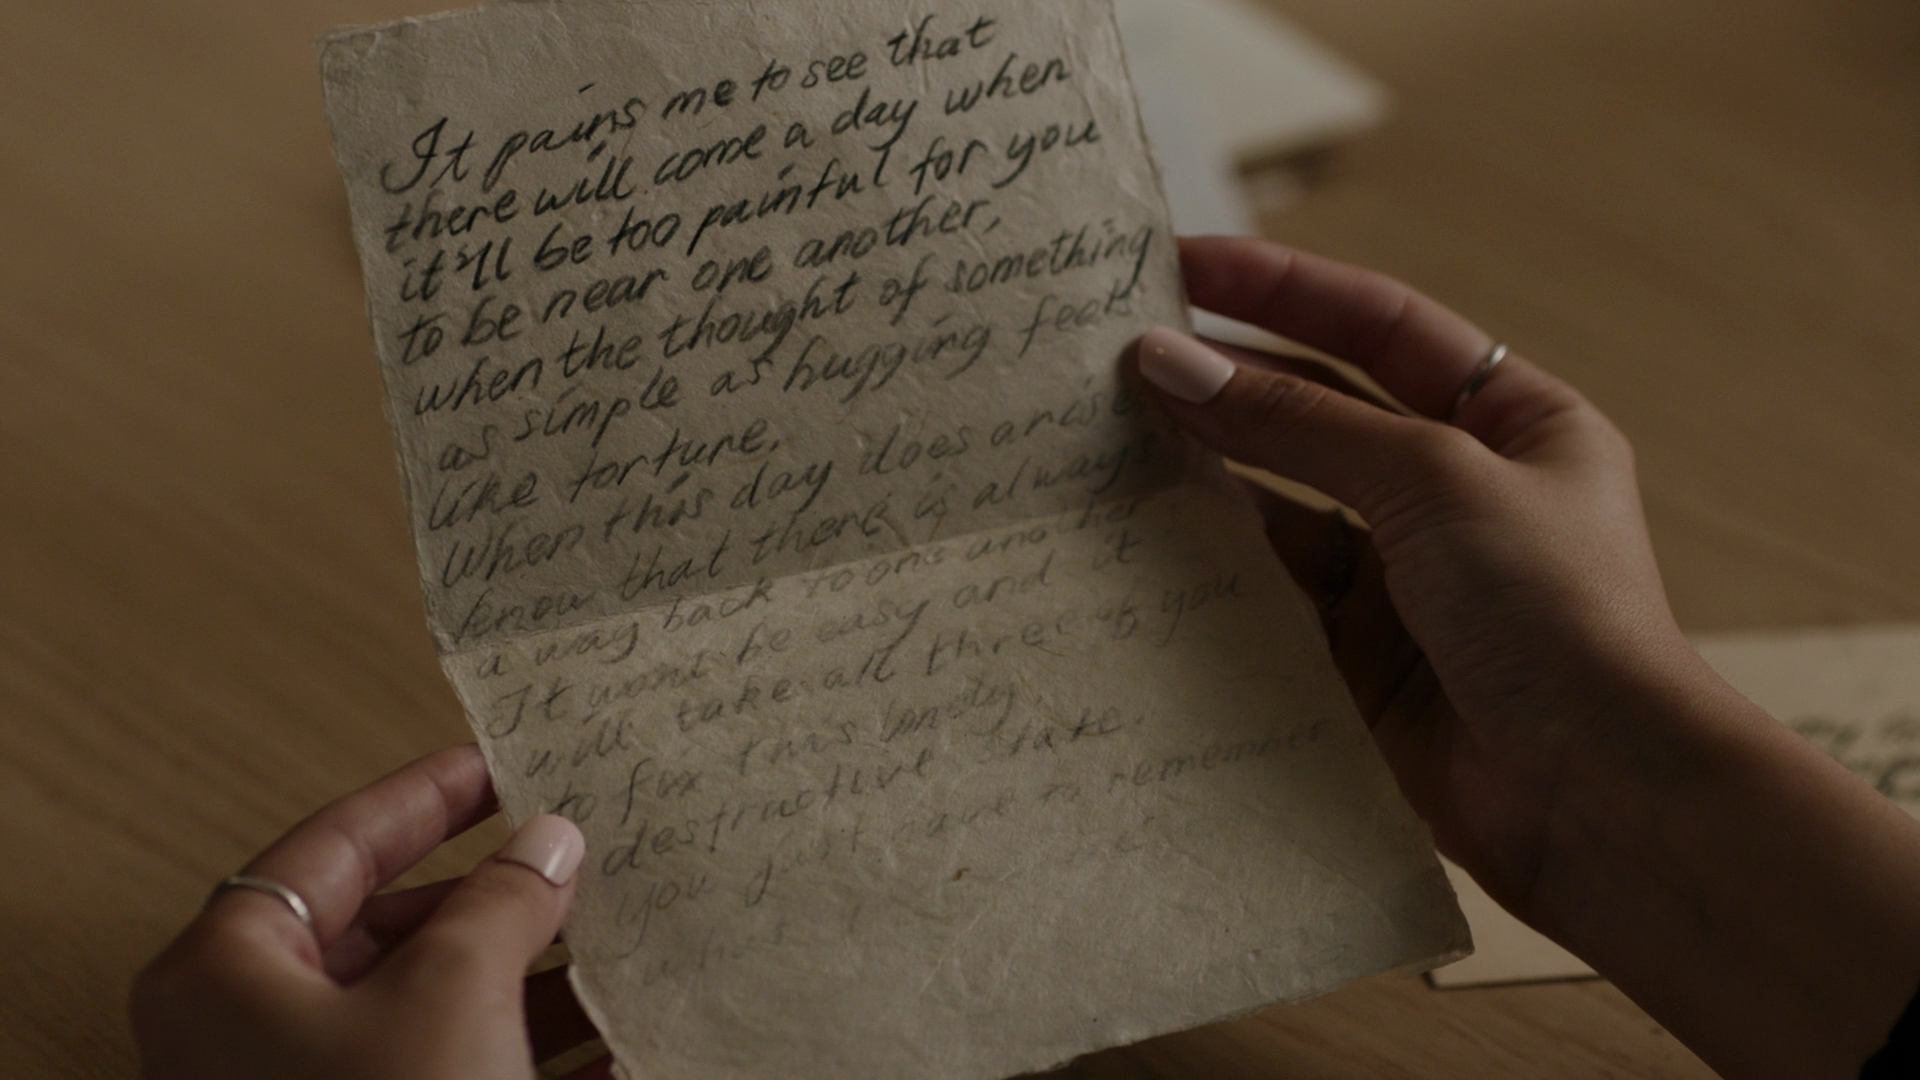 It pains me to see that
there will come a day when
it'll be too painful for you
to be near one another,
when the thought of something
as simple as hugging feels
like torture.
When this day does arise
know that there is always
a way back to one another
It wont be easy and it
will take all three of you
to fix this lonely
destructive state.
you just have to remember
what